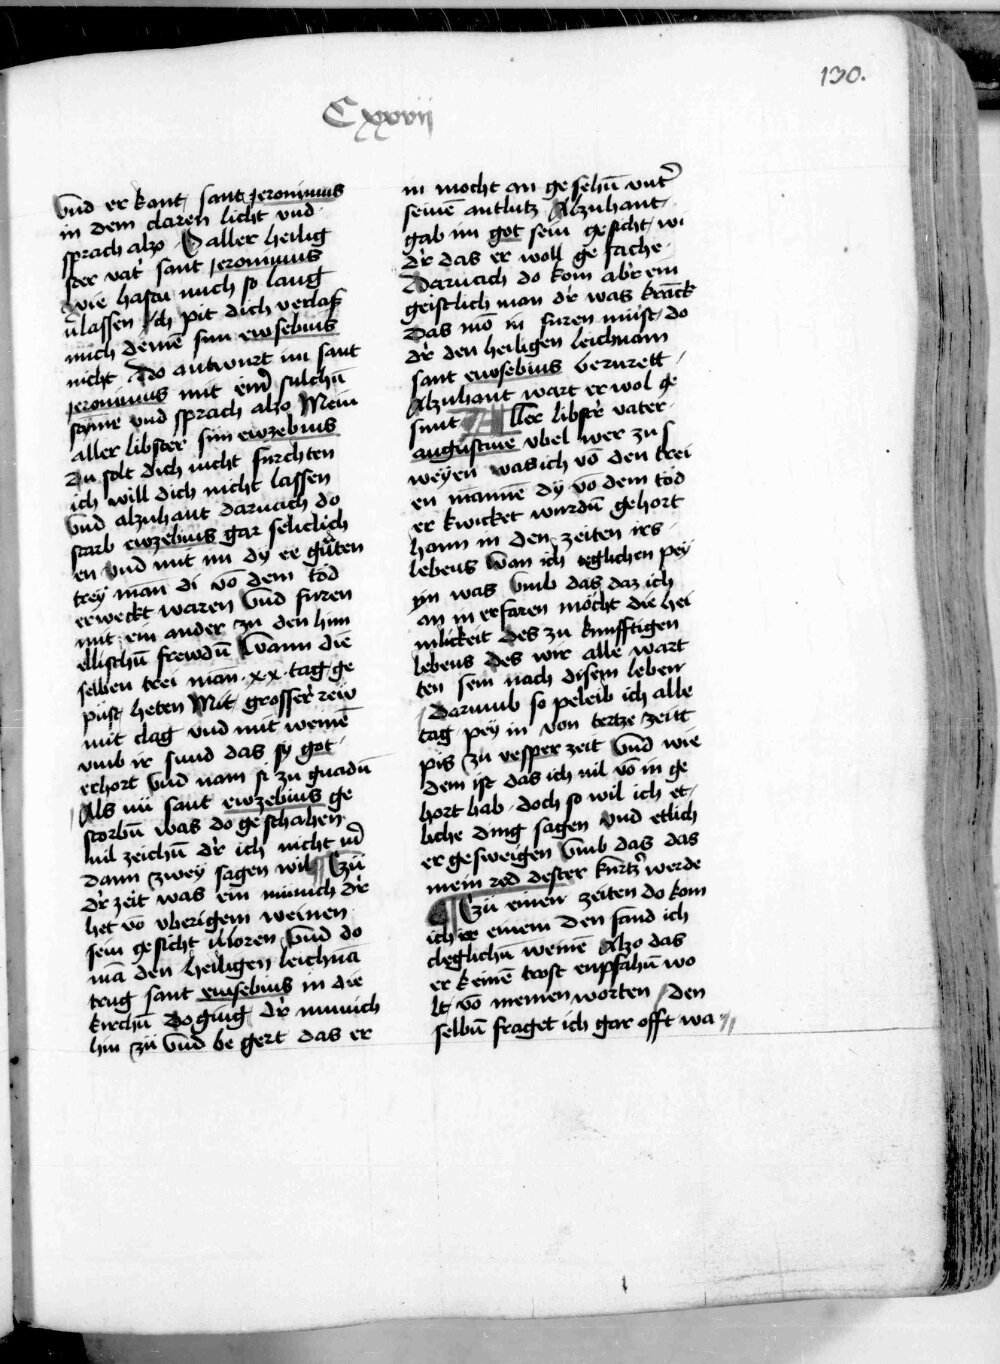 130.
Cxxvij
Vnd er kant sant jeronimus
in dem claren licht vnd
sprach alzo O aller heilig
ster vat sant jeronimus
wie hastu mich so lang
v̄lassen Ich pit dich verlaß
mich deinē sun ewsebius
nicht Do antwurt im sant
jeronimus mit einr̄ sulchū
stȳme vnd sprach alzo Mein
aller libster sun ewzebius
Du solt dich nicht furchten
ich will dich nicht lassen
Vnd alzuhant darnach do
starb ewzebius gar seliclich
en vnd mit im dy er guten
trey man di vō dem tod
erweckt waren Vnd furen
mit ein ander zu den him
ellischū frewdū Wann die
selben trei man ·x·x· tag ge
püst heten Mit grosser rew
mit clag vnd mit weinē
vmb ir sund das sy got
erhort vnd nam si zu gnadū
Als nū sant ewzebius ge
storbū was do geschahen
vil zeichū dr̄ ich nicht m̄
dann zwey sagen wil Zū
dr̄ zeit was ein münich dr̄
het vō vberigem weinen
sein gesicht v̄loren Vnd do
mā den heiligen leichnā
trug sant ewsebius in die
kirchū Do ging dr̄ munich
hin zū Vnd be gert das er
in mocht an gesehū vntr̄
seinē antlutz Alzuhant
gab im got sein gesicht wi
dr̄ das er woll ge sache
Darnach do kom abr̄ ein
geistlich man dr̄ was kranck
Das mō in furen müst do
dr̄ den heiligen leichnam
sant ewsebius berurett
Alzuhant wart er wol ge
sunt Aller libstr̄ vater
augustine vbel wer zu s
weyen was ich vō den trei
en mannē dy vō dem tod
er kwicket wurdū gehort
hann in den zeiten irs
lebens Wan ich teglichen pey
yn was Vmb das daz ich
an in erfaren möcht die hei
mlickeit des zu kunfftigen
lebens des wir alle wart
ten sein nach disem leben
Darumb so peleib ich alle
tag pey in von tertze zeitt
pis zu vesper zeit Vnd wie
dem ist das ich vil vō in ge
hort hab doch so wil ich et
liche ding sagen vnd etlich
er gesweigen Vmb das das
mein red dester kürtzr̄ werde
Zū einen zeiten do kom
ich zu einem Den fand ich
cleglichū weinē Alzo das
er keinē trost enpfahū wo
lt vō meinen worten Den
selbū fraget ich gar offt wa